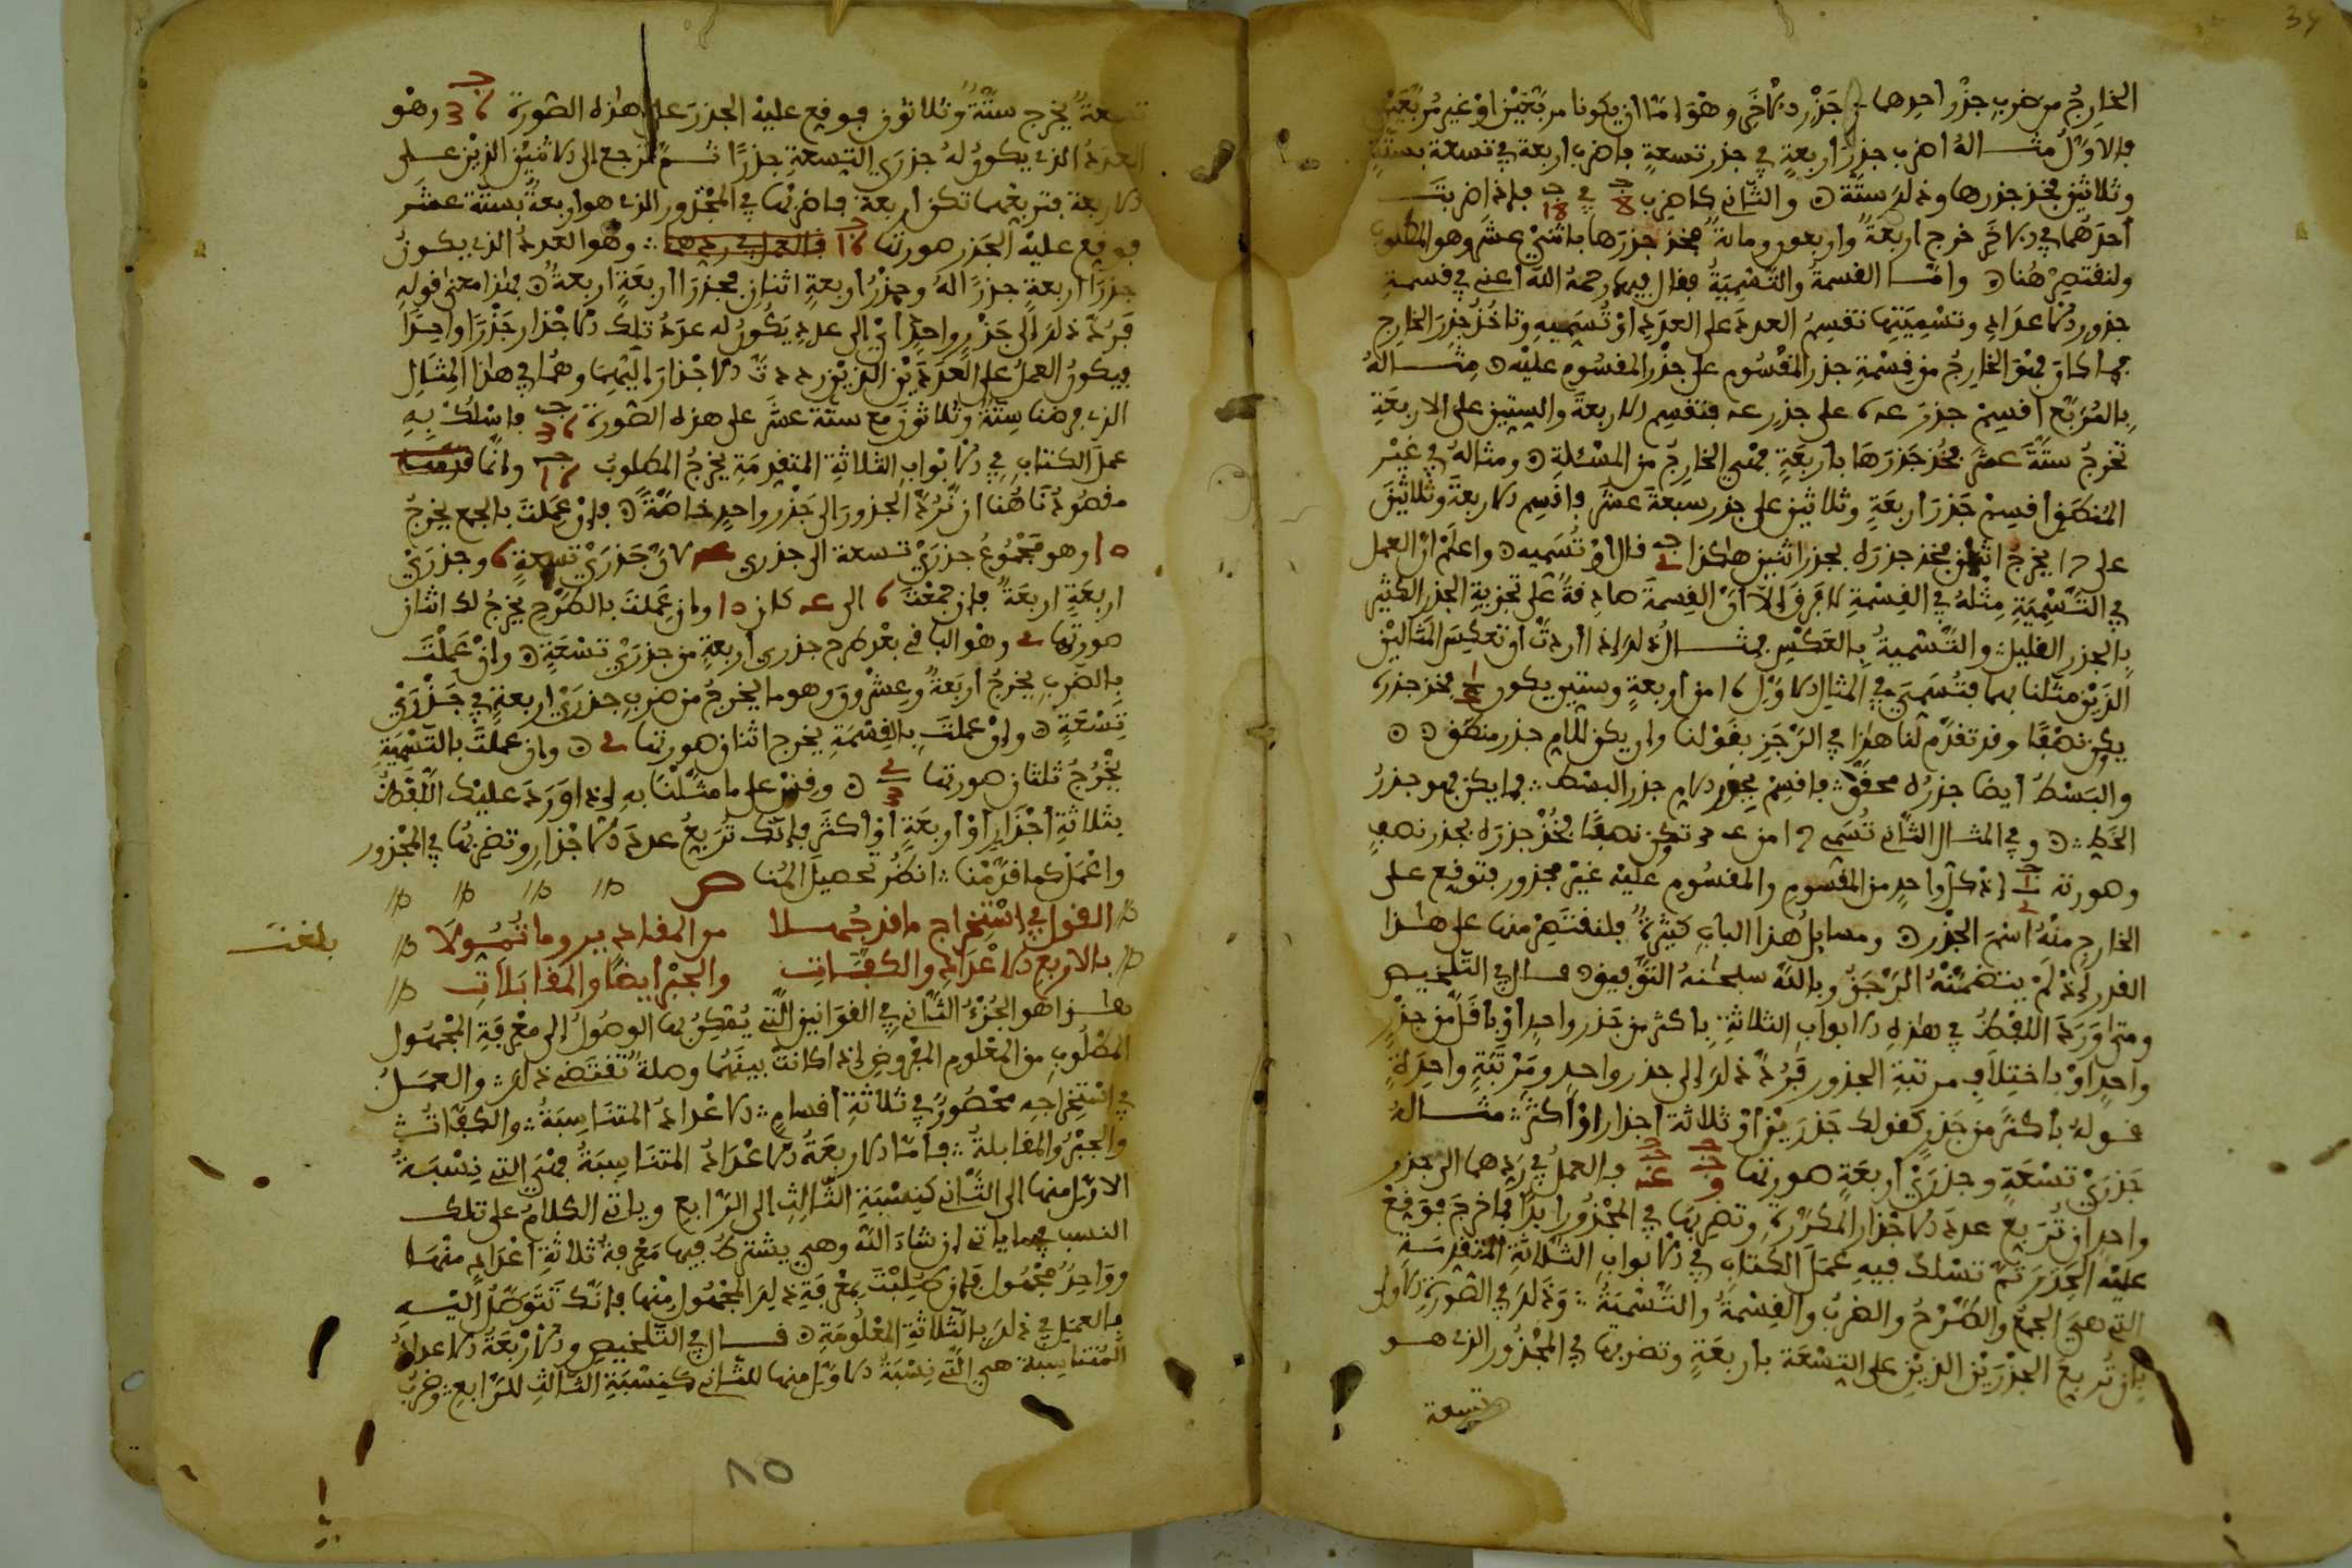 الخارج من ضرب جذر احدهما في جذر الآخر وهو امّا ان يكونا مربّعين او غير مربّعين
فالاوّل مثاله اضرب جذر اربعة في جذر تسعة فاضرب اربعة في تسعة بستّة
وثلاثين فخذ جذرها وذلك ستّة والثاني كاضرب 8 في 18 فإذا ضربت
احدهما في الآخر خرج اربعة واربعون ومائة فخذ جذرها باثني عشر وهو المطلوب
ولنقتصر هنا وامّا القسمة والتسمية فقال فيهما رحمه الله اعني في قسمة
جذور الاعداد وتسميتها تقسم العدد على العدد او تسميه وتاخذ جذر الخارج
فما كان فهو الخارج من قسمة جذر المقسوم على جذر المقسوم عليه مثاله
بالمربّع اقسم جذر على جذر فتقسم الاربعة والستين على الاربعة
تخرج ستّة عشر فخذ جذرها باربعة فهي الخارج من المسئلة ومثاله في غير
المنطق اقسم جذر اربعة وثلاثين على جذر سبعة عشر فاقسم الاربعة وثلاثين
على يخرج اثنان فخذ جذره بجذر اثنين هاكذا قال او تسميه واعلم ان العمل
في التسمية مثله في القسمة لا فرق إلّا انّ القسمة صادقة على تجزية الجذر الكثير
بالجذر القليل والتسمية بالعكس مثال ذلك إذا اردت ان تعكس المثالين
الذين مثّلنا بهما فتسمي في المثال الاوّل من اربعة وستين يكون فخذ جذره
يكن نصفا وقد تقدّم لنا هاذا في الرجز بقولنا وان يكن للامام جذر منطق
والبسط ايضا جذره محقّق فاقسم بجذر الامام جذر البسط فما يكن فهو جذر
الخط وفي المثال الثاني تسمي من تكن نصفا فخذ جذره بجذر نصف
وصورته إذ كل واحد من المقسوم والمقسوم عليه غير مجذور فتوقع على
الخارج منه اسم الجذر ومسايل هذا الباب كثيرة فلنقتصر منها على هاذا
القدر إذ لم يتضمّنه الرجز وبالله سبحانه التوفيق قال في التلخيص
ومتى ورد اللفظ في هاذه الابواب الثلاثة باكثر من جذر واحد او باقل من جذر
واحد او باختلاف مرتبة الجذور فردّ ذلك إلى جذر واحد ومرتبة واحدة
قوله باكثر من جذر كقولك جذرين او ثلاثة اجذار او اكثر مثاله
جذري تسعة وجذري اربعة صورتها فالعمل في ردهما الى جذر
واحد ان تربع عدد الاجذار المكررة وتضربها في المجذور ابدا فما خرج فوقع
عليه الجذر ثمّ تسلك فيه عمل الكتاب في الابواب الثلاثة المتقدمة
التي هي الجمع والطرح والضرب والقسمة والتسمية وذلك في الصورة الاولى
بان تربع الجذرين الذين على التسعة باربعة وتضربها في المجذور الذي هو
تسعة
تسعة يخرج ستّة وثلاثون فوقع عليه الجذر على هاذه الصورة 36 وهو
العدد الذي يكون له جذري التسعة جذرا ثم ترجع الى الاثنين الذين على
الاربعة فتربعهما تكن اربعة فاضربها في المجذور الذي هو اربعة بستّة عشر
فوقع عليه الجذر صورتها 16 فالعمل في ردهما وهو العدد الذي يكون
جذرا اربعة جذرا له وجذر اربعة اثنان فجذرا اربعة اربعة فهاذا معنى قوله
فردّ ذلك إلى جذر واحد اي الى عدد يكون له عدد تلك الاجذار جذرا واحدا
فيكون العمل على العددين الذين رددت الاجذار اليهما وهما في هاذا المثال
الذي فرضنا ستّة وثلاثون مع ستّة عشر على هذه الصورة 36 فاسلك به
عمل الكتاب في الابواب الثلاثة المتقدمة يخرج المطلوب 16 وانّما قدمنا
مقصودنا هنا ان نردّ الجذور الى جذر واحد خاصّة فإن عملت بالجمع يخرج
10 وهو مجموع جذري تسعة الى جذري لان جذري تسعة 6 وجذري
اربعة اربعة فان جمعت 6 الى كان 10 وان عملت بالطرح يخرج لك اثنان
صورتها وهو الباقي بعد طرح جذري اربعة من جذري تسعة وان عملت
بالضرب يخرج اربعة وعشرون وهو ما يخرج من ضرب جذري اربعة في جذري
تسعة وان عملت بالقسمة يخرج اثنان صورتها وان عملت بالتسمية
يخرج ثلثان صورتها وقس على ما مثّلنا به إذا ورد عليك اللفظ
بثلاثة اجذار او اربعة او اكثر فإنّك تربع عدد الاجذار وتضربها في المجذور
واعمل كما قدّمنا انظر تحصيل المنا
القول في استخراج ما قد جهلا من المقادير وما تموّلا
بالاربع الاعداد والكفّات والجبر ايضا والمقابلات
بلغت
هاذا هو الجزء الثاني في القوانين التي يمكن بها الوصول إلى معرفة المجهول
المطلوب من المعلوم المفروض إذا كانت بينهما وصلة تقتضي ذلك والعمل
في استخراجه محصور في ثلاثة اقسام الاعداد المتناسبة والكفّات
والجبر والمقابلة فامّا الاربعة الاعداد المتناسبة فهي التي نسبة
الاوّل منها الى الثاني كنسبة الثالث الى الرابع وياتي الكلام على تلك
النسب فيما ياتي ان شاء الله وهي يشترط فيها معرفة ثلاثة اعداد منها
وواحد مجهول فإن طلبت بمعرفة ذلك المجهول منها فإنّك تتوصّل اليه
بالعمل في ذلك بالثلاثة المعلومة قال في التلخيص والاربعة الاعداد
المتناسبة هي التي نسبة الاوّل منها للثاني كنسبة الثالث للرابع وضرب